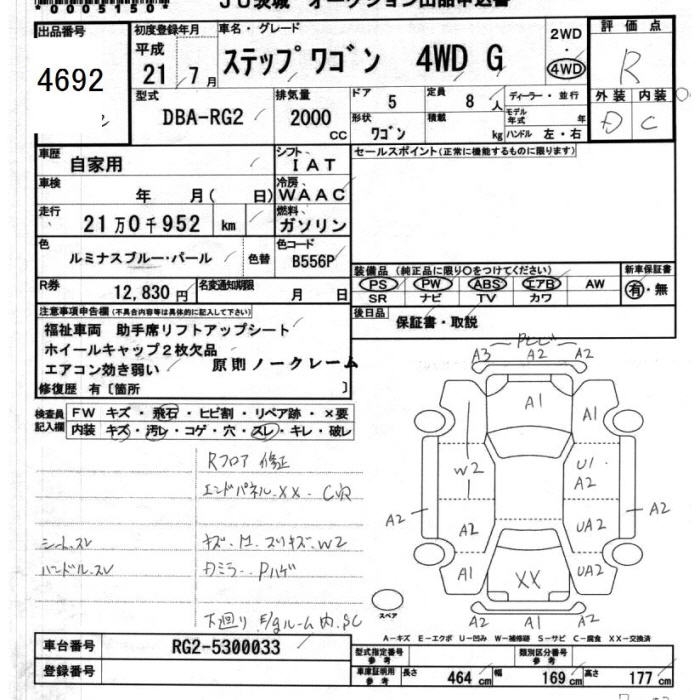 *0005150*
JU茨城 オークション出品申込書
出品番号 4692
初度登録年月 平成 21年 7月
車名・グレード ステップワゴン 4WD G
2WD・4WD
評価点 R
外装 D 内装 C
型式 DBA-RG2
排気量 2000 CC
ドア 5
定員 8人
形状 ワゴン
積載 kg
ディーラー・並行
モデル年式 年
ハンドル 左・右
車歴 自家用
シフト IAT
車検 年 月( 日)
冷房 WAAC
走行 21万0千952 km
燃料 ガソリン
色 ルミナスブルー・パール
色替
色コード B556P
R券 12,830円
名変通知期限 月 日
セールスポイント(正常に機能するものに限ります)
装備品(純正品に限り○をつけてください)
PS PW ABS エアB AW
SR ナビ TV カワ
新車保証書 有・無
後日品 保証書・取説
注意事項申告欄(不具合内容等は具体的に記入して下さい)
福祉車両 助手席リフトアップシート
ホイールキャップ2枚欠品
エアコン効き弱い 原則ノークレーム
修復歴 有〔箇所 〕
検査員記入欄
FW キズ・飛石・ヒビ割・リペア跡・×要
内装 キズ・汚レ・コゲ・穴・スレ・キレ・破レ
Rフロア 修正
エンドパネル XX・
シートスレ
キズ・M・スリキズ・W2
ハンドルスレ
Dミラー・Pハゲ
下廻り E/gルーム内 SC
A3 A2 A2
A1 A1
W2 U1 A2
A2 A2
A2 UA2
A1 XX UA2
スペア
A2 A1 A2
A－キズ E－エクボ U－凹み W－補修跡 S－サビ C－腐食 XX－交換済
車台番号 RG2-5300033
登録番号
型式指定番号 参考
類別区分番号 参考
車庫証明用 参考 長さ 464 cm 幅 169 cm 高さ 177 cm